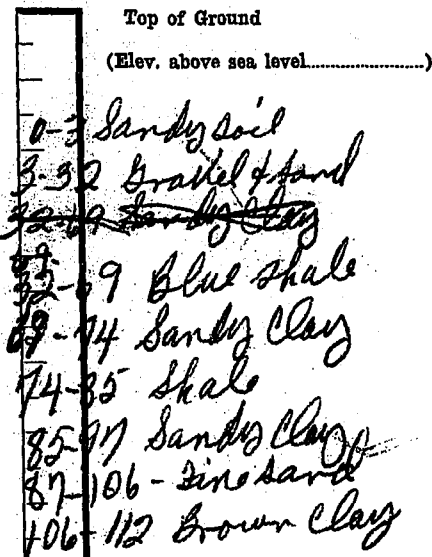 Top of Ground
(Elev. above sea level....................)
0-3 Sandy soil
3-32 Gravel & sand
32-69 Sandy Clay
32-69 Blue shale
69-74 Sandy Clay
74-85 Shale
85-97 Sandy Clay
87-106 - Fine sand
106-112 Brown Clay